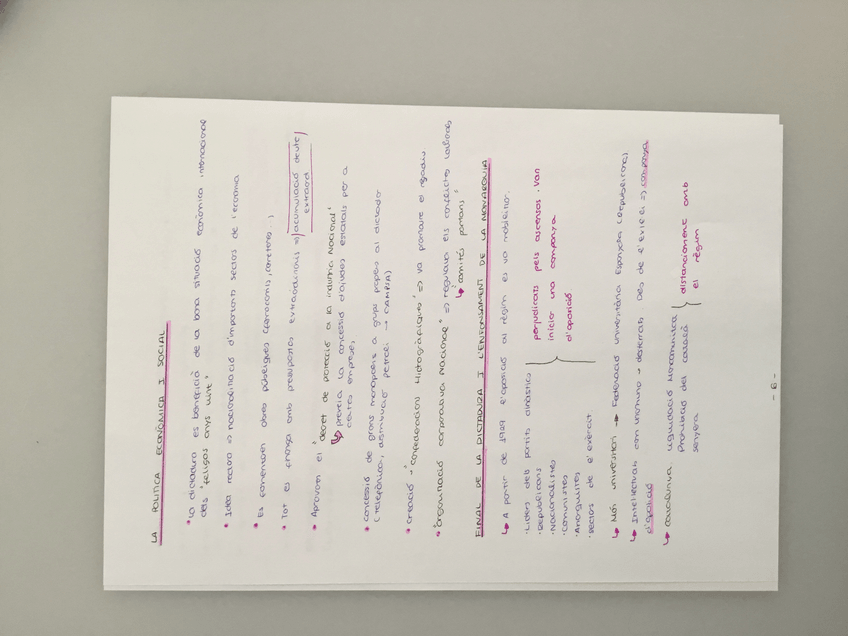 LA POLÍTICA ECONÒMICA I SOCIAL
• La dictadura es beneficià de la bona situació econòmica internacional
dels "feliços anys vint"
• Idea rectora => nacionalització d'importants sectors de l'economia
• Es fomentaren obres públiques (ferrocarrils, carreteres...)
• Tot es finançà amb pressupostos extraordinaris => acumulació deute
extraord.
• Aprovaren el "decret de protecció a la indústria Nacional"
↳ preveia la concessió d'ajudes estatals per a
certes empreses
• Concessió de grans monopolis a grups propers al dictador
(telefònica, distribució petroli → CAMPSA)
• Creació → "Confederacions Hidrogràfiques" => va promoure el regadiu
• "Organització Corporativa Nacional" => regulava els conflictes laborals
↳ "comitès paritaris"
FINAL DE LA DICTADURA I L'ENFONSAMENT DE LA MONARQUIA
↳ A partir de 1929 l'oposició al règim es va mobilitzar.
· Líders dels partits dinàstics
· Republicans
· Nacionalistes
· Comunistes
· Anarquistes
· Sectors de l'exèrcit
perjudicats pels ascensos. Van
iniciar una campanya
d'oposició
↳ Món universitari → Federació universitària Espanyola (republicana)
↳ Intel·lectuals com Unamuno → desterrats. Des de l'exili => campanya
d'oposició
↳ Catalunya: Liquidació Mancomunitat
Prohibició del català
senyera
distanciament amb
el règim
- 6 -